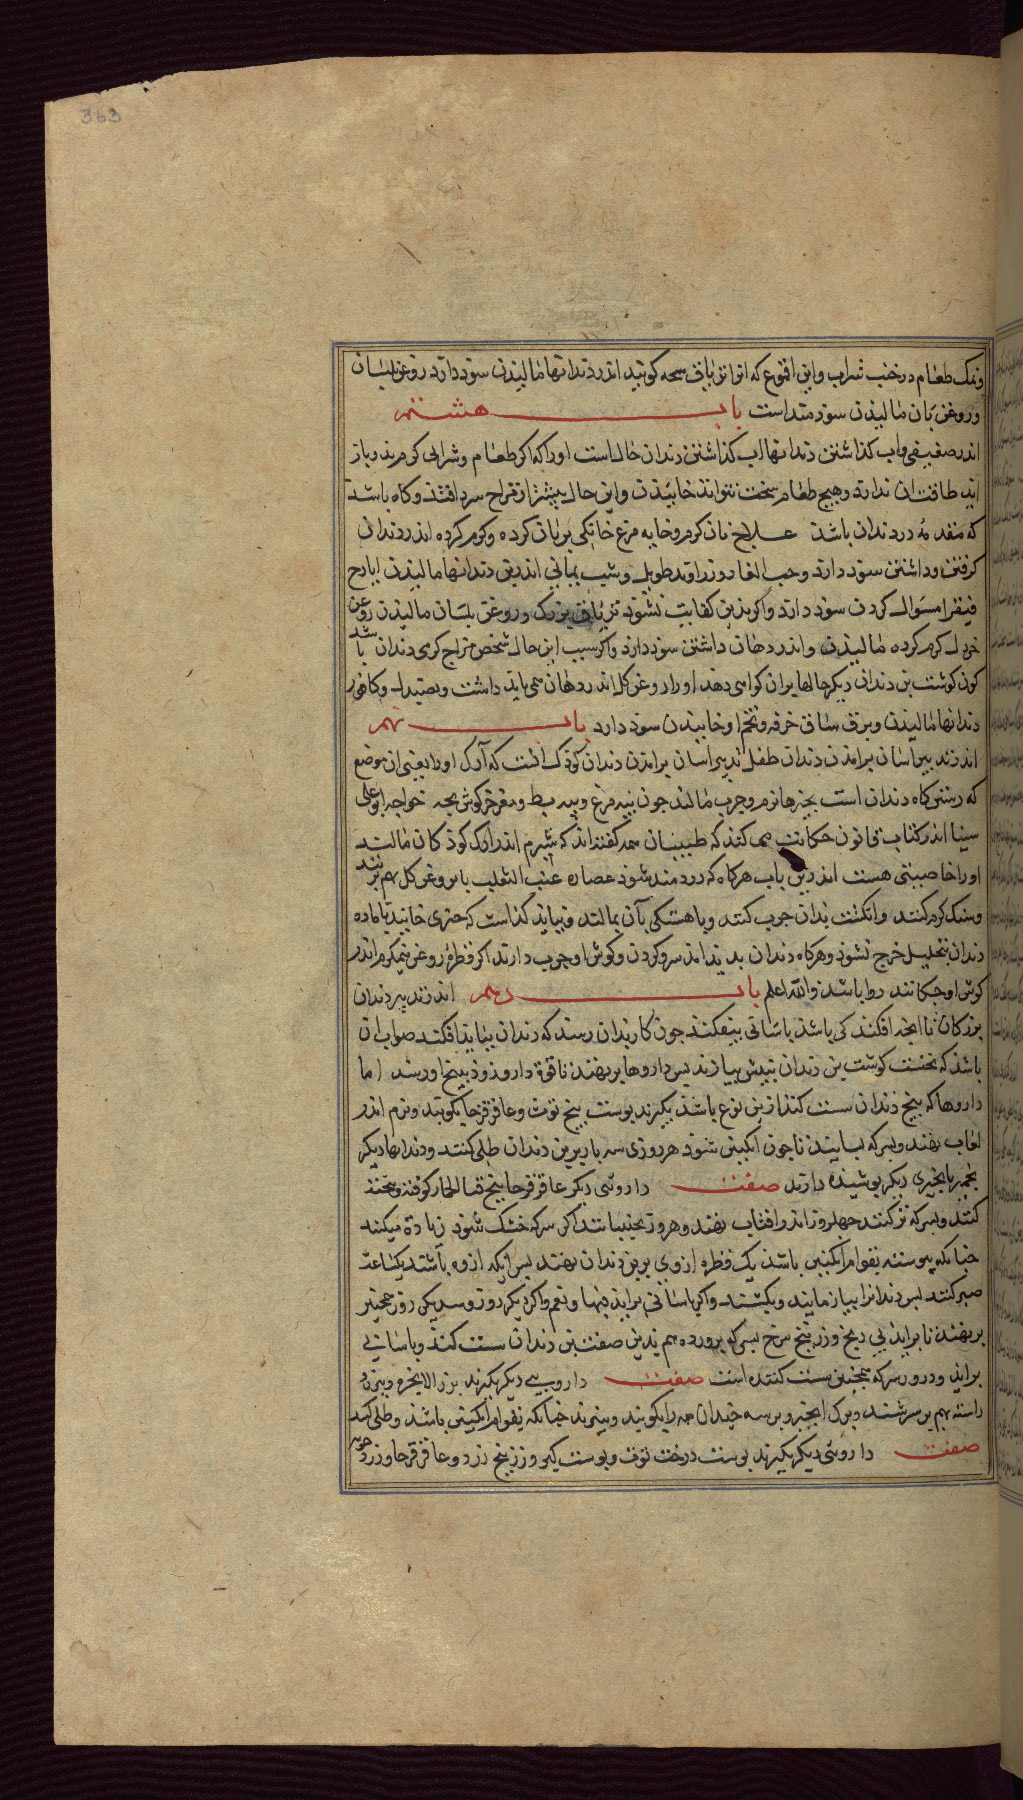 363
ونمک طعام درخنب شراب واین انواع که انرا تریاق سحه کویند اندر دندانها مالیدن سود دارد روغن بلسان
وروغن بان مالیدن سودمنداست باب هشتم
اندر ضعیفی واب کذاشتن دندانها اب کذاشتن دندان حال است اورا که اکر طعام وشرابی کرم بذو باز
اید طاقت ان ندارد وهیچ طعام سخت نتواند خاییدن واین حال بیشتر از مزاج سرد افتد وکاه باشد
که مقدمه درد دندان باشد علاج نان کرم وخایه مرغ خانکی بریان کرده وکرم کرده اندر دندان
کرفتن وداشتن سود دارد وحب الغار وزراوند طویل وشب یمانی اندرین دندانها مالیدن ایارج
فیقرا مسواک کردن سود دارد واکر بذین کفایت نشود تریاق بزرک وروغن بلسان مالیدن روغن
خردل کرم کرده مالیدن واندر دهان داشتن سود دارد واکر سبب این حال شخص مزاج کرمی دندان باشد
کون کوشت بن دندان دیکر حالها بران کواهی دهد اورا روغن کل اندر دهان می باید داشت وبصندل وکافور
دندانها مالیدن وبرک وساق خرفه وتخم او خاییدن سود دارد باب نهم
اندر تدبیر آسان برامدن دندان طفل تدبیر اسان برامدن دندان کودک انست که آرک اورا یعنی ان موضع
که رستن کاه دندان است بچیزها نرم وچرب مالند چون پیه مرغ وپیه بط ومغز خرکوش بجه خواجه ابو علی
سینا اندر کتاب قانون حکایت می کند که طبیبان همه کفته اند که شیرم اندر ارک کودکان مالند
اورا خاصیتی هست اندرین باب هرکاه که دردمند شود عصاره عنب الثعلب با روغن کل بهم بزنند
ونیک کرم کنند وانکشت بدان چرب کنند وباهستکی بآن بمالند ونباید کذاشت که چیزی خاید تا ماده
دندان بتحلیل خرج نشود وهرکاه دندان بدید اند سر وکردن وکوش او چرب دارند اکر قطرهٔ روغن نیمکرم اندر
کوش او چکانند روا باشد والله اعلم باب دهم اندر تدبیر دندان
بزرکان تا انچه افکندنی باشد باسانی بیفکنند چون کار بدان رسد که دندان بباید افکند صواب ان
باشد که نخست کوشت بن دندان بنیش بیازند پس داروها بر نهند تا قوة دارو زود ببیخ او رسد اما
داروها که بیخ دندان سست کند ازین نوع باشد بکیرند پوست بیخ توث وعاقرقرحا بکوبند ونرم اندر
افتاب نهند وبسرکه بسایند تا چون انکبین شود هر روزی سه بار بربن دندان طلی کنند ودندانها دیکر
بخمیر یا بچیزی دیکر پوشیده دارند صفت داروئی دیکر عاقرقرحا بیخ قثاء الحمار کوفته وبیخته
کنند وبسرکه تر کنند چهل روز اندر افتاب نهند وهر روز بجنبانند اکر سرکه خشک شود زیادة میکنند
چنانکه پیوسته بقوام انکبین باشد یک قطره ازوی بربن دندان نهند پس ازانکه ازوه باشند یکساعت
صبر کنند پس دندانرا بیازمایند وبکشند واکر باسانی براید فبها ونعم واکر دیکر روز وسدیکر روز همچنین
بر نهند تا براید بی رنج وزرنیخ سرخ بسرکه پرورده هم بدین صفت بن دندان سست کند وباسانی
براید ودرد سرکه همچنین سست کننده است صفت دارویی دیکر بکیرند بزر الانجره وبیرزد
راسته بهم بر سرشند وبرک انجیر وبرسه چندان همه را بکوبند وبپزند چنانکه بقوام انکبین باشد وطلی کنند
صفت داروئی دیکر بکیرند پوست درخت توث وپوست کبر وزرنیخ زرد وعاقرقرحا وزرد چوبه